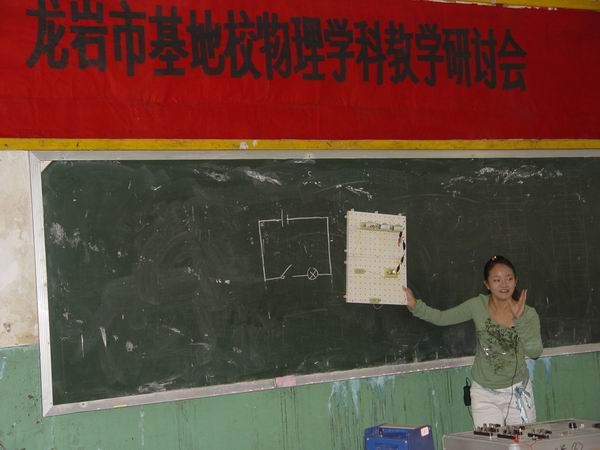 龙岩市基地校物理学科教学研讨会